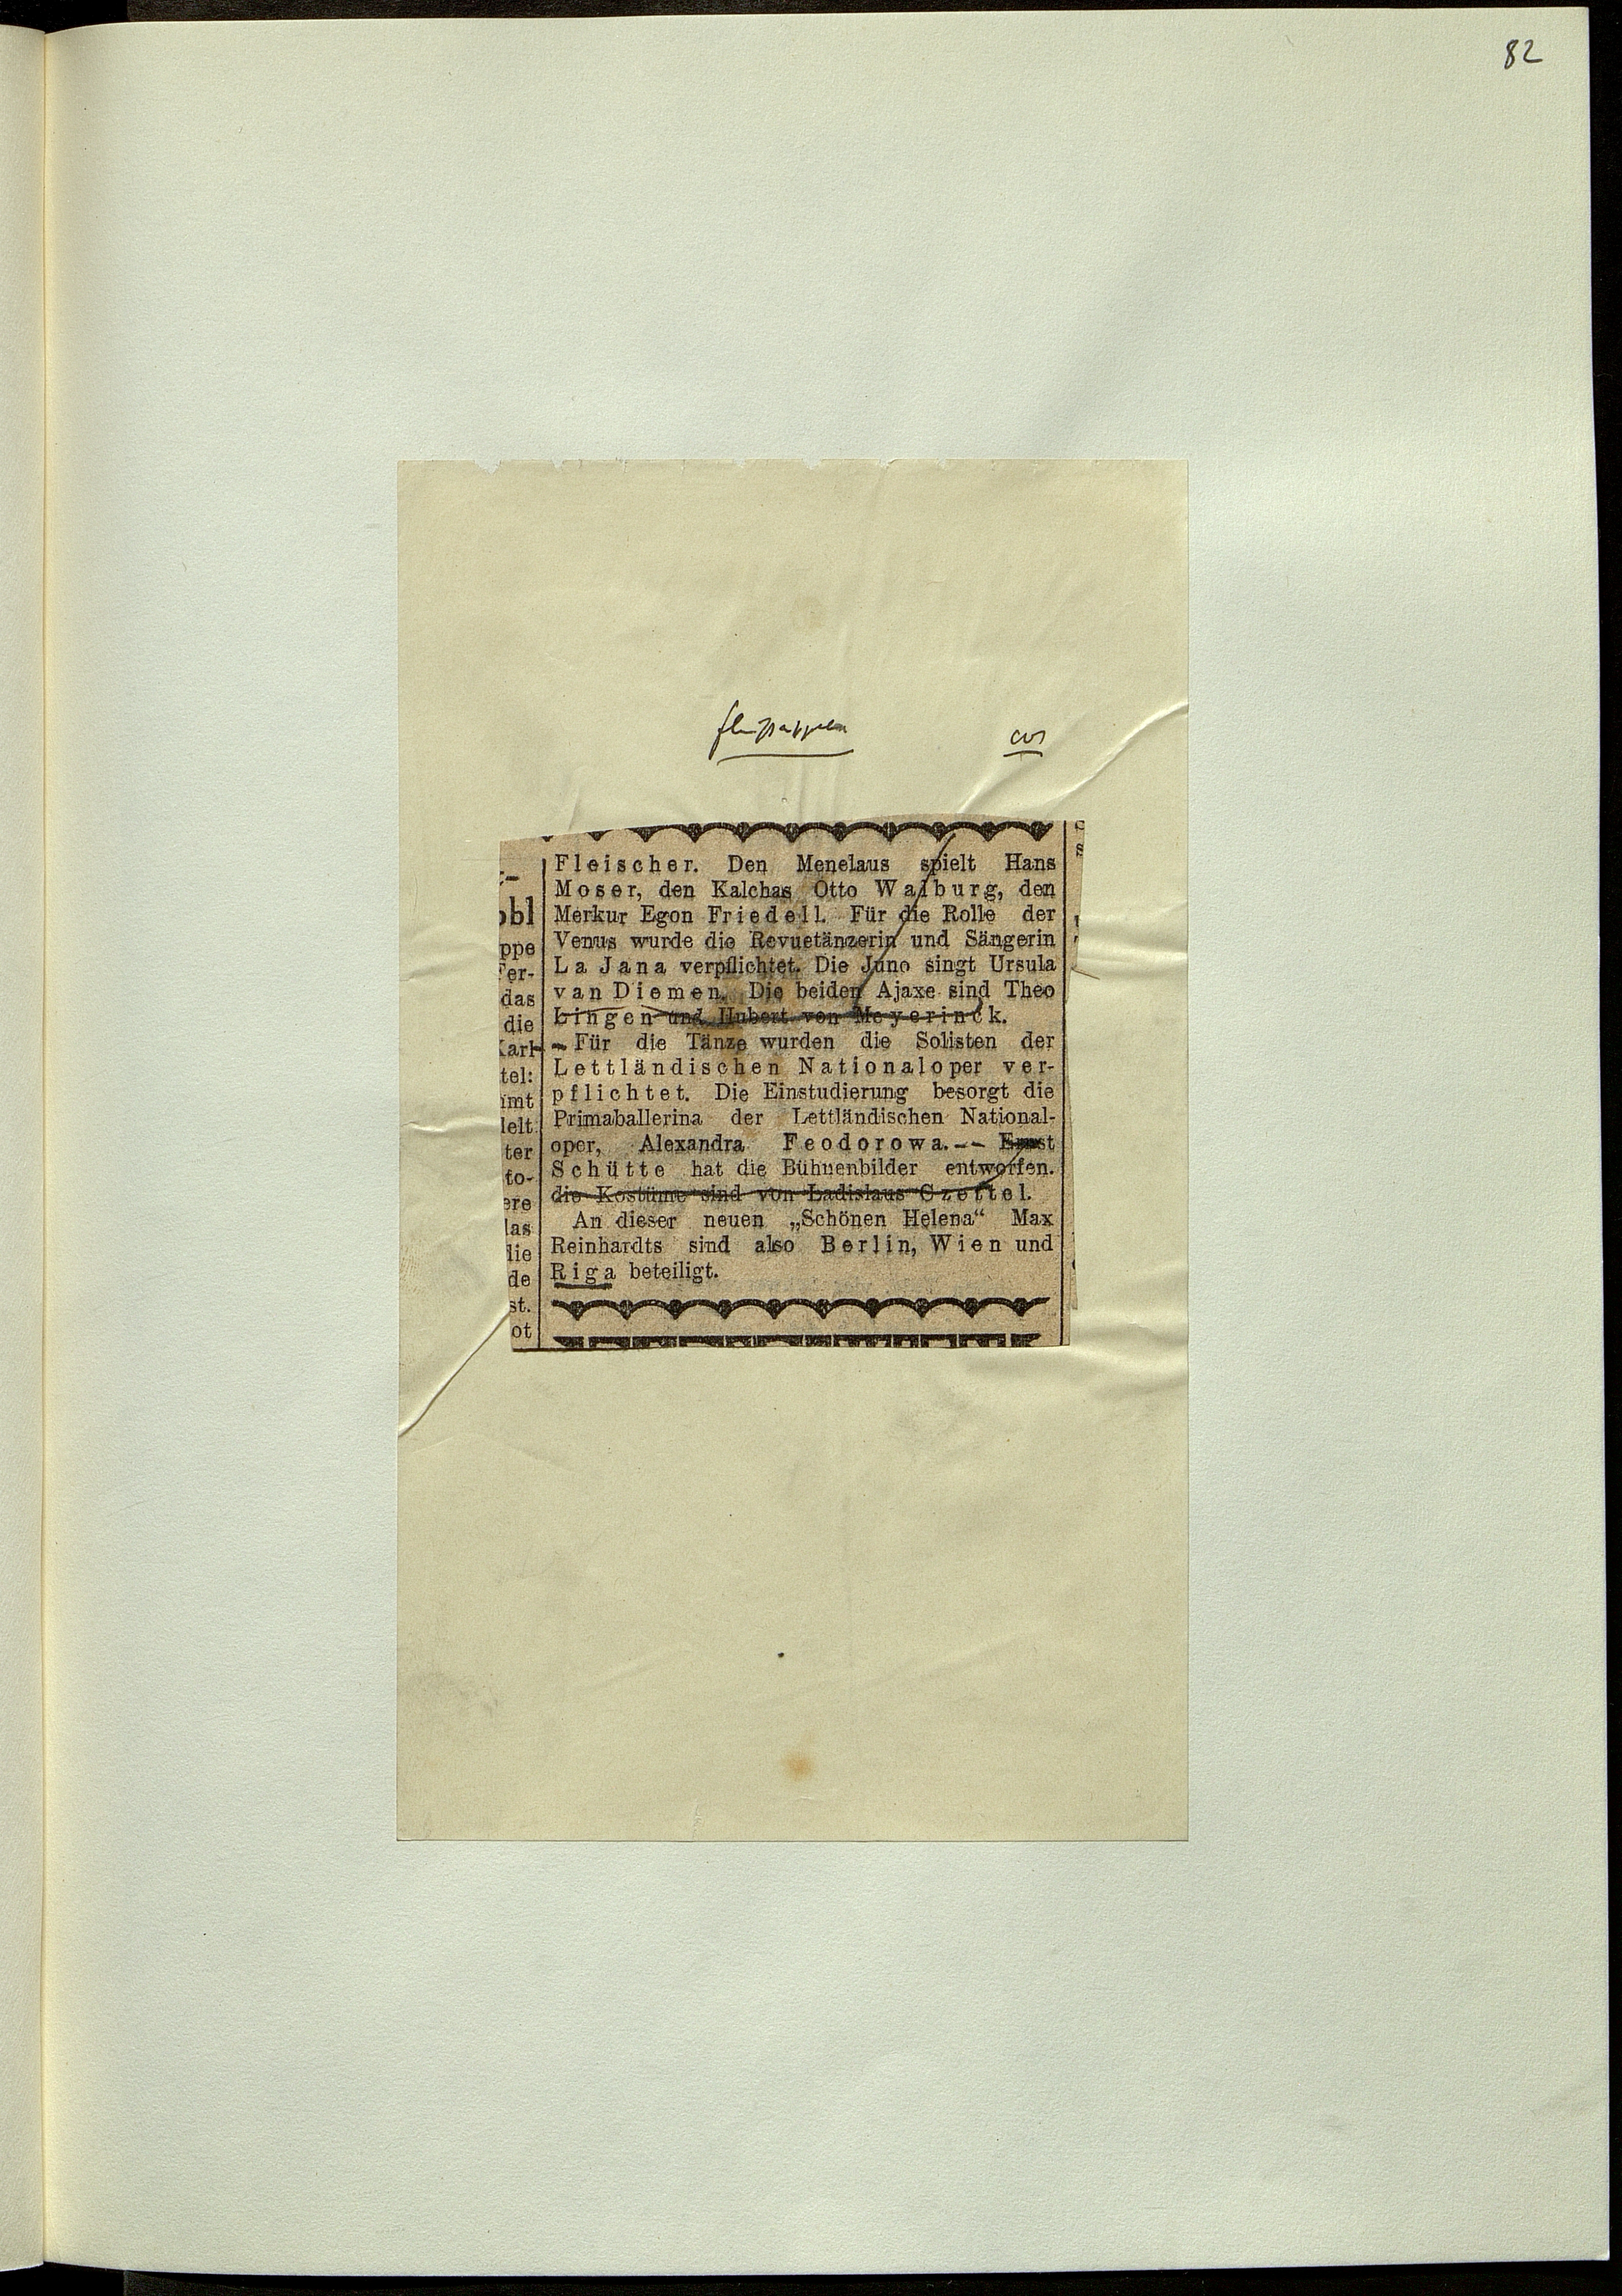 82
Fleischer. Den Menelaus spielt Hans
Moser, den Kalchas Otto Walburg, den
Merkur Egon Friedell. Für die Rolle der
Venus wurde die Revuetänzerin und Sängerin
La Jana verpflichtet. Die Juno singt Ursula
van Diemen. Die beiden Ajaxe sind Theo
Lingen und Hubert von Meyerinck.
Für die Tänze wurden die Solisten der
Lettländischen Nationaloper ver-
pflichtet. Die Einstudierung besorgt die
Primaballerina der Lettländischen National-
oper, Alexandra Feodorowa. -- Ernst
Schütte hat die Bühnenbilder entworfen.
die Kostüme sind von Ladislaus Czettel.
An dieser neuen „Schönen Helena“ Max
Reinhardts sind also Berlin, Wien und
Riga beteiligt.
obl
ppe
Fer-
das
die
Karl
tel:
imt
lelt
ter
to-
ere
las
lie
de
st.
ot